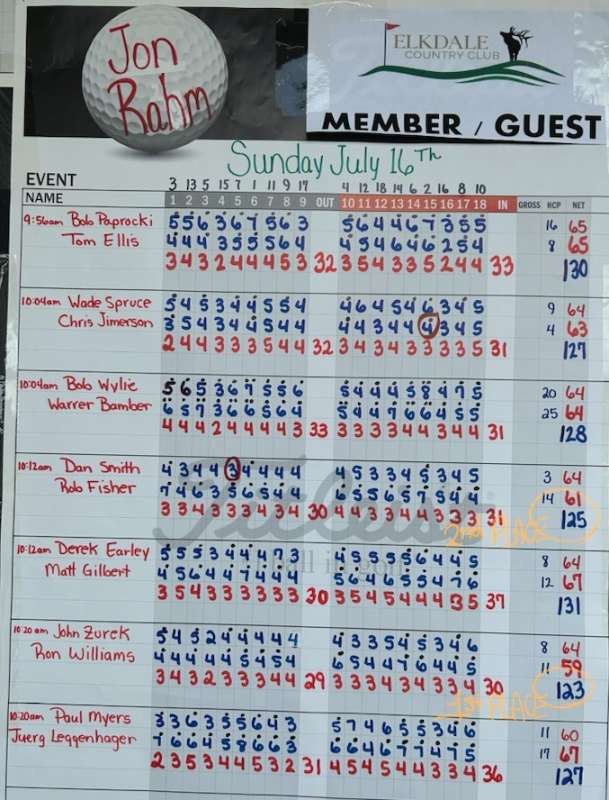 Jon
Rahm
ELKDALE
COUNTRY CLUB
MEMBER / GUEST
Sunday July 16Th
EVENT 3 13 5 15 7 1 11 9 17 4 12 18 14 6 2 16 8 10
NAME 1 2 3 4 5 6 7 8 9 OUT 10 11 12 13 14 15 16 17 18 IN GROSS HCP NET
9:56am Bob Paprocki 5 5 6 3 6 7 5 6 3 5 6 4 4 6 7 3 5 5 16 65
Tom Ellis 4 4 4 3 5 5 5 6 4 4 5 4 6 4 6 2 5 4 8 65
3 4 3 2 4 4 4 5 3 32 3 5 4 3 3 5 2 4 4 33 130
10:04am Wade Spruce 5 4 5 3 4 4 5 5 4 4 6 4 5 4 6 3 4 5 9 64
Chris Jimerson 3 5 4 3 4 4 5 4 4 4 4 3 4 4 4 3 4 5 4 63
2 4 4 3 3 3 5 4 4 32 3 4 3 4 3 3 3 3 5 31 127
10:04am Bob Wylie 5 6 5 3 6 7 5 5 6 5 4 4 4 5 8 4 7 5 20 64
Warrer Bamber 6 5 7 3 6 6 5 6 4 5 4 4 7 6 6 4 5 5 25 64
4 4 4 2 4 4 4 4 3 33 3 3 3 3 4 4 3 4 4 31 128
10:12am Dan Smith 4 3 4 4 3 4 4 4 4 4 5 3 3 4 5 3 4 5 3 64
Rob Fisher 7 4 6 3 5 6 5 4 4 6 5 5 6 5 7 5 4 4 14 61
3 3 4 3 3 3 4 3 4 30 4 4 3 3 4 4 3 3 3 31 125
2nd PLACE
10:12am Derek Earley 5 5 5 3 4 4 4 7 3 4 5 5 5 5 6 4 4 5 8 64
Matt Gilbert 4 5 6 4 4 7 4 4 4 5 6 4 6 5 5 4 7 6 12 67
3 5 4 3 3 3 3 3 3 30 3 5 4 5 4 4 4 3 5 37 131
10:20am John Zurek 5 4 5 2 4 4 4 4 4 4 3 3 5 4 5 3 4 6 8 64
Ron Williams 4 4 4 4 4 5 4 5 4 6 5 4 4 7 6 4 4 5 11 59
3 4 3 2 3 3 3 4 4 29 3 3 3 4 3 4 3 3 4 30 123
1st PLACE
10:20am Paul Myers 3 3 6 3 5 5 6 4 3 5 7 4 6 5 5 3 4 6 11 60
Juerg Leggenhager 7 6 6 4 5 8 6 6 3 6 6 4 6 7 7 4 7 5 17 67
2 3 5 3 4 4 5 3 2 31 4 5 3 5 4 4 4 3 4 36 127